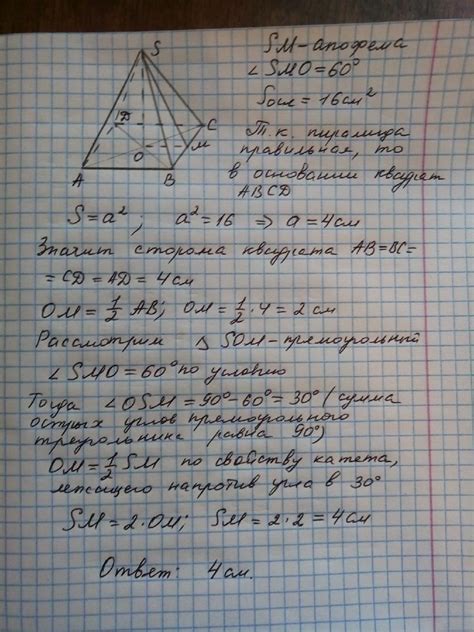 S
SM - апофема
∠SMO = 60°
Sосн = 16 см²
Т.к. пирамида
правильная, то
в основании квадрат
ABCD
Д
C
M
O
A
B
S = a² ; a² = 16 ⇒ a = 4 см
Значит сторона квадрата AB = BC =
= CD = AD = 4 см
OM = 1/2 AB; OM = 1/2 · 4 = 2 см
Рассмотрим △ SOM - прямоугольный
∠SMO = 60° по условию
Тогда ∠OSM = 90° - 60° = 30° (сумма
острых углов прямоугольного
треугольника равна 90°)
OM = 1/2 SM по свойству катета,
лежащего напротив угла в 30°
SM = 2 · OM; SM = 2 · 2 = 4 см
Ответ: 4 см.